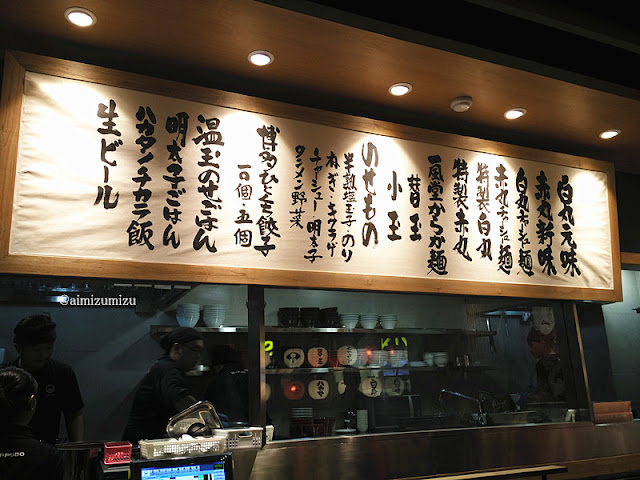 白丸元味
赤丸新味
白丸チャーシュー麺
赤丸チャーシュー麺
特製白丸
特製赤丸
一風堂からか麺
替玉
小玉
のせもの
半熟塩玉子・のり
ねぎ・きくらげ
チャーシュー・明太子
タンメン野菜
博多ひとくち餃子
一〇個・五個
温玉のせごはん
明太子ごはん
ハカタノチカラ飯
生ビール
@aimizumizu